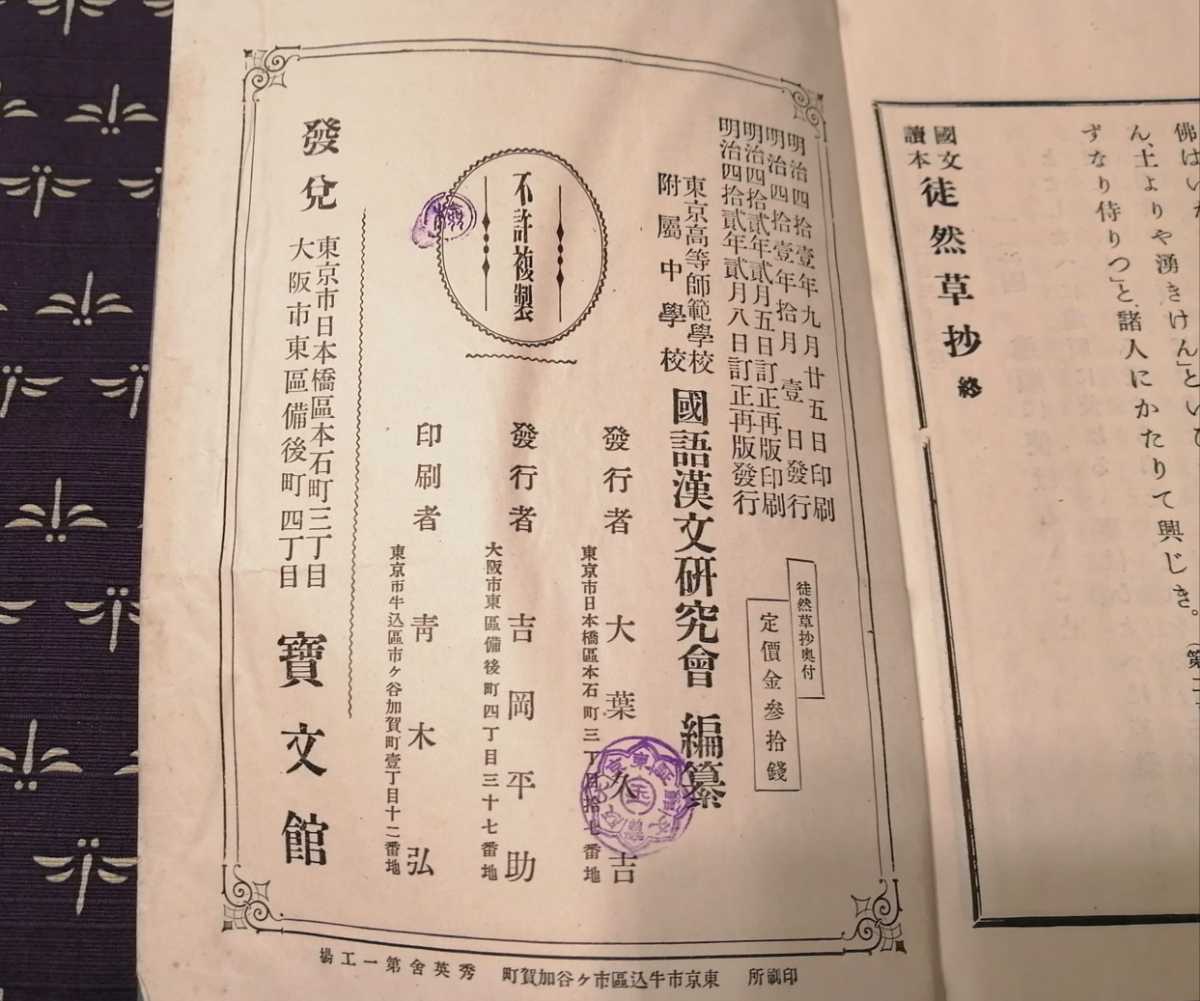 佛はい
ん、土よりや湧きけん」とい
ずなり侍りつ」と、諸人にかたりて興じき。
國文讀本 徒然草抄 終
明治四拾壹年九月廿五日印刷
明治四拾壹年拾月壹日發行
明治四拾貳年貳月五日訂正再版印刷
明治四拾貳年貳月八日訂正再版發行
徒然草抄奥付
定價金參拾錢
東京高等師範學校
附屬中學校
國語漢文研究會 編纂
不許複製
發行者 大葉久吉
東京市日本橋區本石町三丁目拾七番地
發行者 吉岡平助
大阪市東區備後町四丁目三十七番地
印刷者 青木弘
東京市牛込區市ヶ谷加賀町壹丁目十二番地
發兌
東京市日本橋區本石町三丁目
大阪市東區備後町四丁目
寶文館
印刷所 東京市牛込區市ヶ谷加賀町 秀英舍第一工場